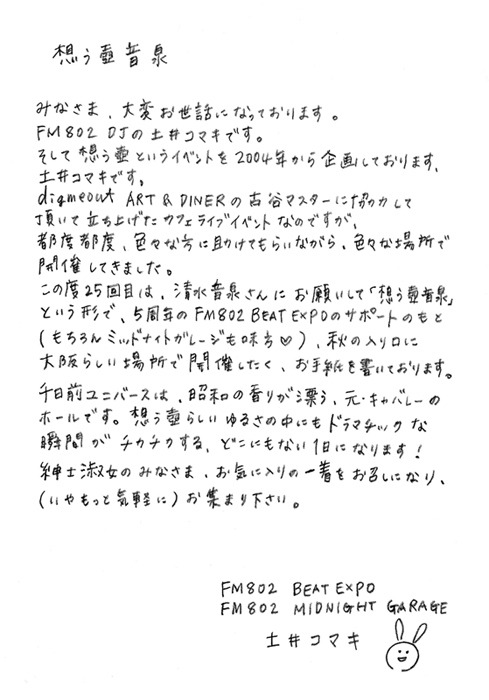 想う壺音泉
みなさま、大変お世話になっております。
FM802 DJの土井コマキです。
そして想う壺というイベントを2004年から企画しております、
土井コマキです。
digmeout ART & DINERの古谷マスターに協力して
頂いて立ち上げたカフェライブイベントなのですが、
都度都度、色々な方に助けてもらいながら、色々な場所で
開催してきました。
この度25回目は、清水音泉さんにお願いして「想う壺音泉」
という形で、5周年のFM802 BEAT EXPOのサポートのもと
(もちろんミッドナイトガレージも味方♡)、秋の入り口に
大阪らしい場所で開催したく、お手紙を書いております。
千日前ユニバースは、昭和の香りが漂う、元・キャバレーの
ホールです。想う壺らしいゆるさの中にもドラマチックな
瞬間がチカチカする、どこにもない1日になります!
紳士淑女のみなさま、お気に入りの一着をお召しになり、
(いやもっと気軽に)お集まり下さい。
FM802 BEAT EXPO
FM802 MIDNIGHT GARAGE
土井コマキ